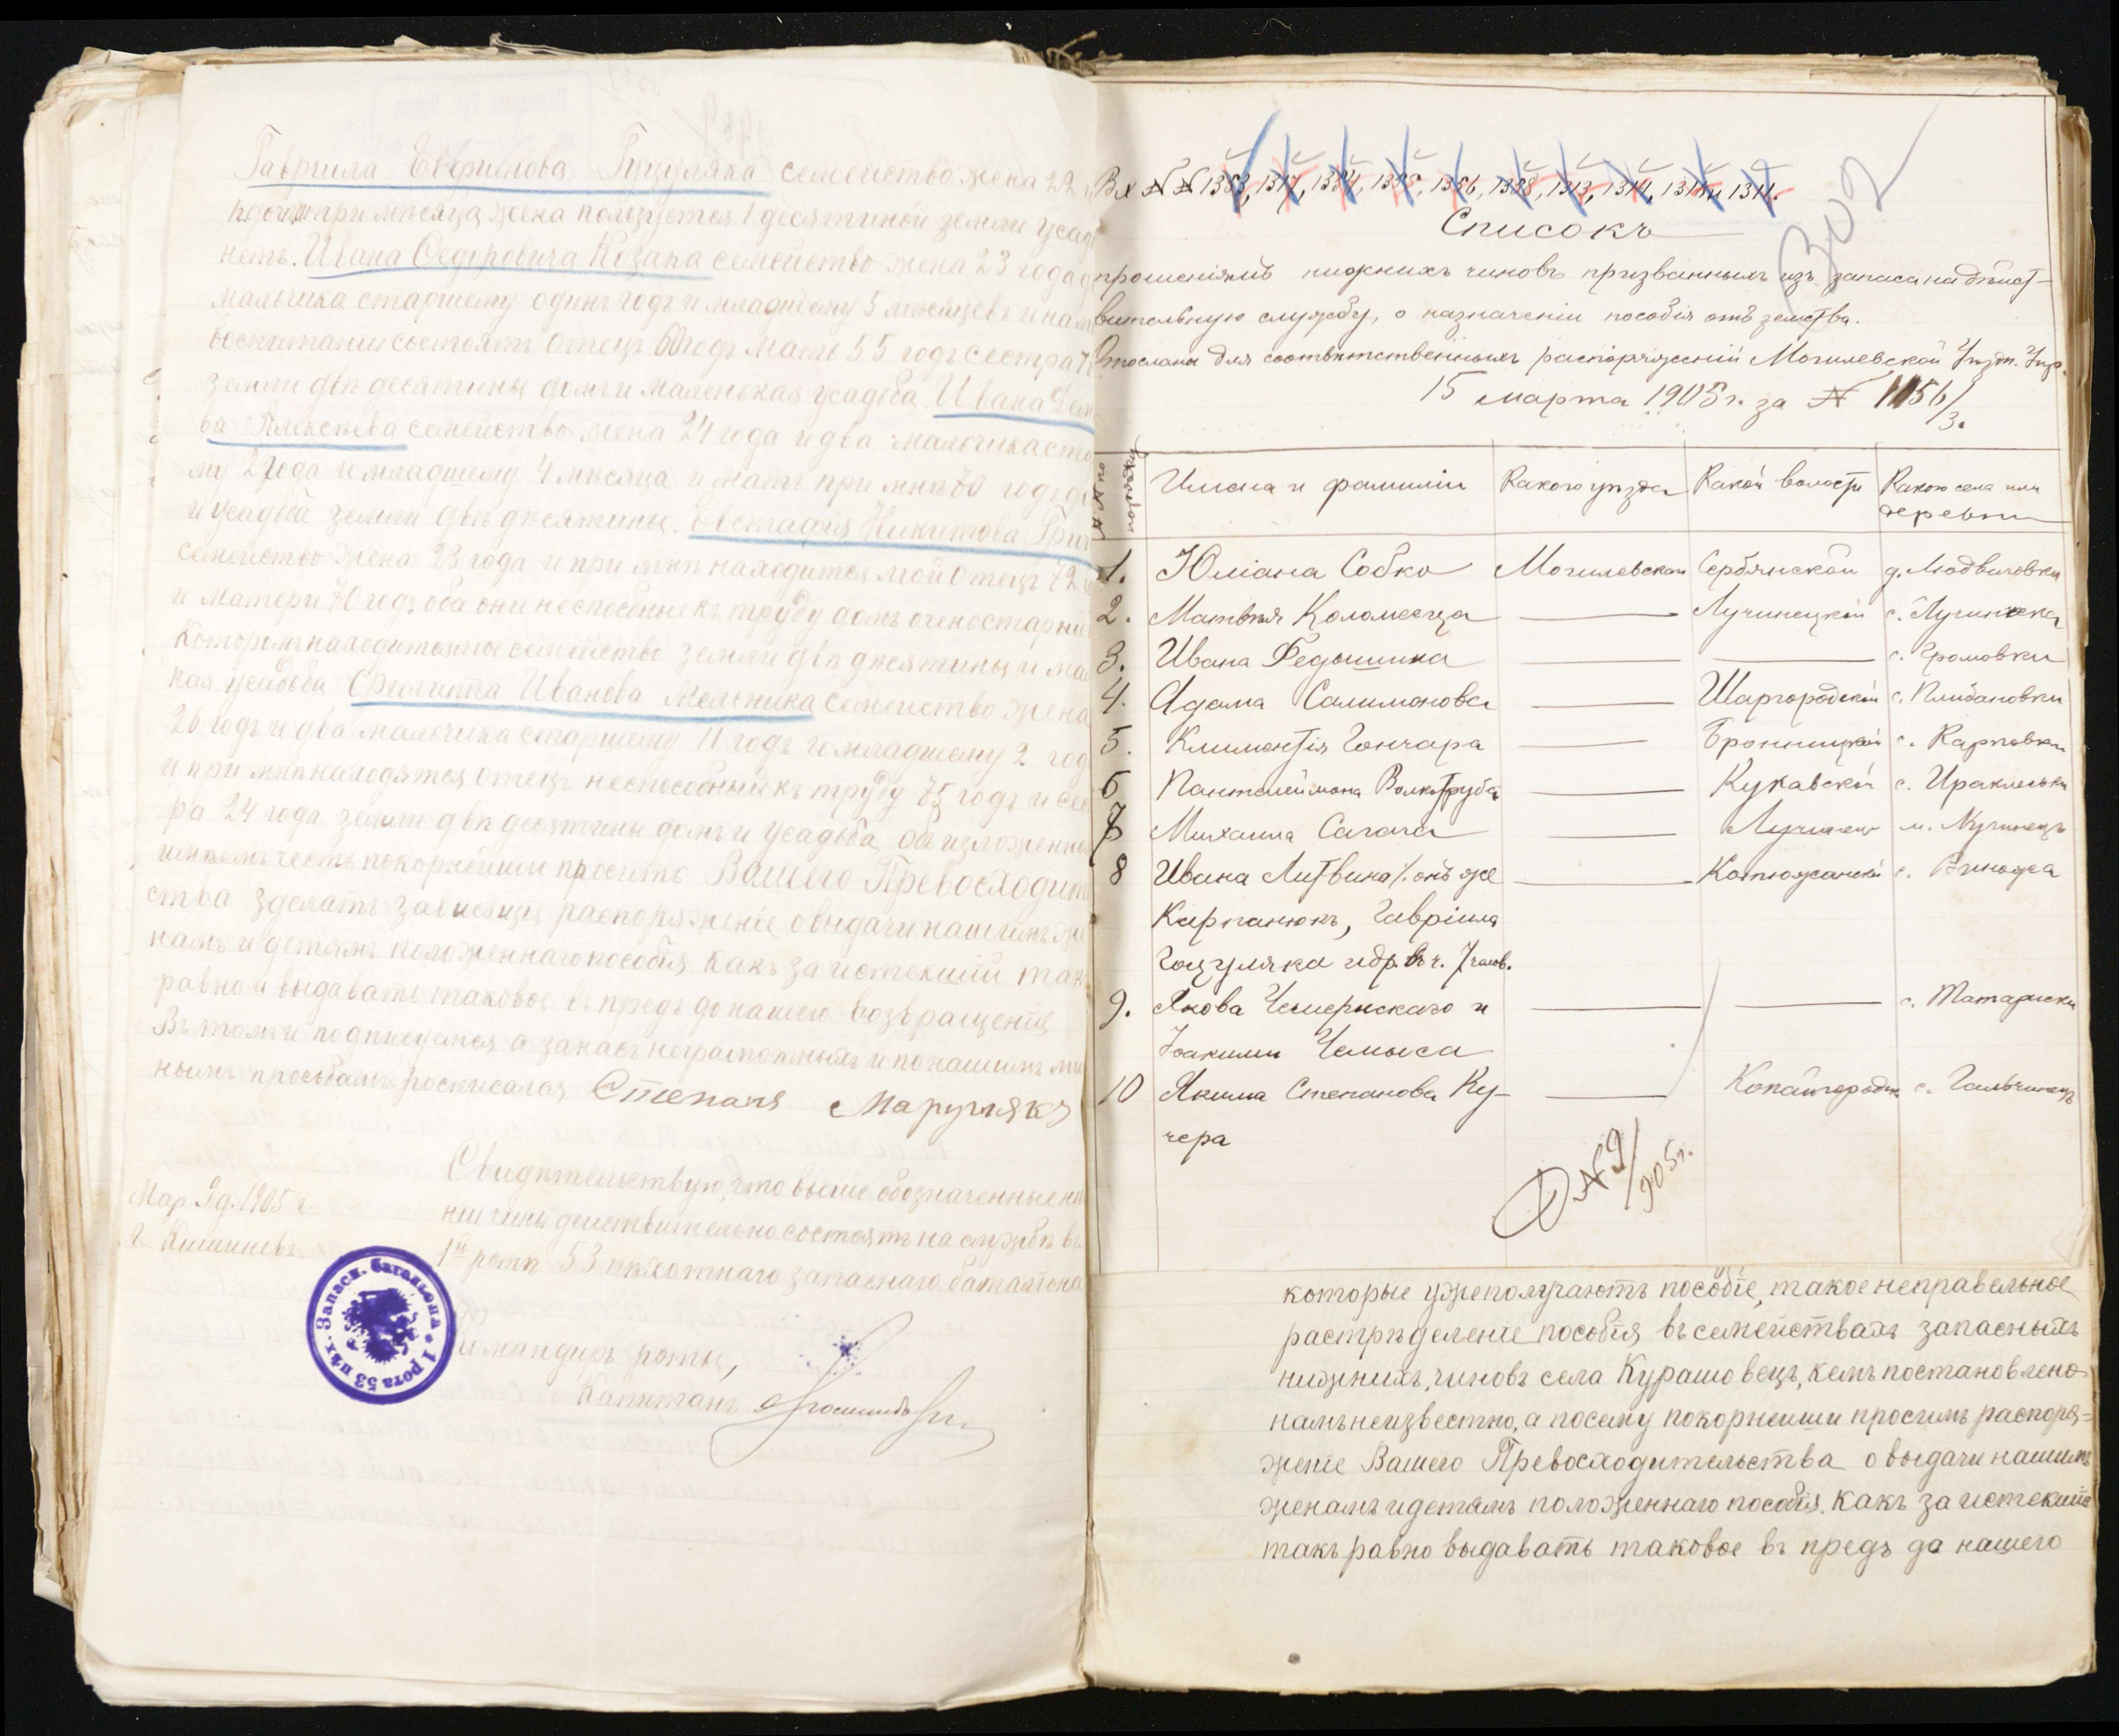 Гавриила Евфимова Гуцуляка семейство жена 22
и дочь три мѣсяца жена пользуется 1 десятиной земли усад
нетъ. Ивана Федоровича Козака семейство жена 23 года д
мальчика старшему одинъ годъ и младшему 5 месяцевъ и на м
воспитании состоятъ отецъ 60 годъ мать 55 годъ сестра
земли двѣ десятины домъ и маленькая усадьба. Ивана Дем
ва семейство жена 24 года и два мальчика ста
му 2 года и младшему 4 мѣсяца и мать при мнѣ 70 годъ до
и усадьба земли двѣ дѣсятины. Евстафия Никитова Гри
семейство жена 23 года и при мнѣ находится мой отецъ 72
и матери 70 годъ оба они неспособние къ труду домъ оченостарый
которомъ находится мое семейство земли двѣ дѣсятины и ма
кая усадьба Филиппа Иванова Мельника семейство жена
26 годъ и два мальчика старшему 11 годъ и младшему 2 год
и при мнѣ находятся отецъ неспособный къ труду 75 годъ и сес
ра 24 года земли двѣ десятины домъ и усадьба объ изложенно
имѣемъ честь покорнейши просить Вашего Превосходит
ства зделать зависящия распоряжение о выдачи нашимъ же
намъ и детямъ положеннаго пособия какъ за истекший так
равно и выдавать таковое въ предъ до нашего возвращения
Въ томъ и подписуемся а за насъ неграмотныхъ и по нашимъ ли
нымъ просьбамъ росписался Степанъ Маруглякъ
Свидѣтельствую, что выше обозначенные ни
Мар 9 д. 1905 г.
нии чины действительно состоятъ на службѣ въ
г. Кишиневъ
1й ротѣ 53 пѣхотнаго запаснаго баталіона
Командиръ роты,
Капитанъ
53 пѣх. Запасн. баталіона * 1 рота
Вх №№ 1383, 1317, 1384, 1385, 1386, 1388, 1313, 1314, 1318 и 1311.
302
Списокъ
прошеніямъ нижнихъ чиновъ призванныхъ изъ запаса на дѣйст-
вительную службу, о назначеніи пособія отъ земства.
Отослана для соотвѣтственныхъ распоряженій Могилевской Уѣздн. Упр.
15 марта 1905 г. за № 1156/3.
№№ по порядку Имена и фамиліи Какого уѣзда Какой волости Какого села или деревни
1. Юліана Собко Могилевскаго Сербянской д. Людвиговки
2. Матвѣя Коломейца — Лучинецкой с. Лучинчека
3. Ивана Федышина — — с. Громовки
4. Адама Салимонова — Шаргородской с. Плебановки
5. Климентія Гончара — Бронницкой с. Карповки
6 Пантелеймона Волкотруба — Кукавской с. Ираклѣевки
7 Михаила Сагача — Лучинец м. Лучинецъ
8 Ивана Литвина /. онъ же — Котюжанской с. Виножа
Карпанюкъ, Гавріила
Гоцуляка и др. въ ч. 7 челов.
9. Якова Чемерискаго и — — с. Татариски
Іоакима Чемыса
10 Якима Степанова Ку- — Копайгородск с. Гальчинецъ
чера
Д № 9/905 г.
которые уже получаютъ пособіе, такое неправельное
растрѣделеніе пособія въ семействахъ запасныхъ
нижнихъ, чиновъ села Курашовецъ, кемъ постановлено
намъ неизвестно, а посему покорнеиши просимъ распоря=
женіе Вашего Превосходительства о выдачи нашимъ
женамъ и детямъ положеннаго пособія. какъ за истекшіе
такъ равно выдавать таковое въ предъ да нашего